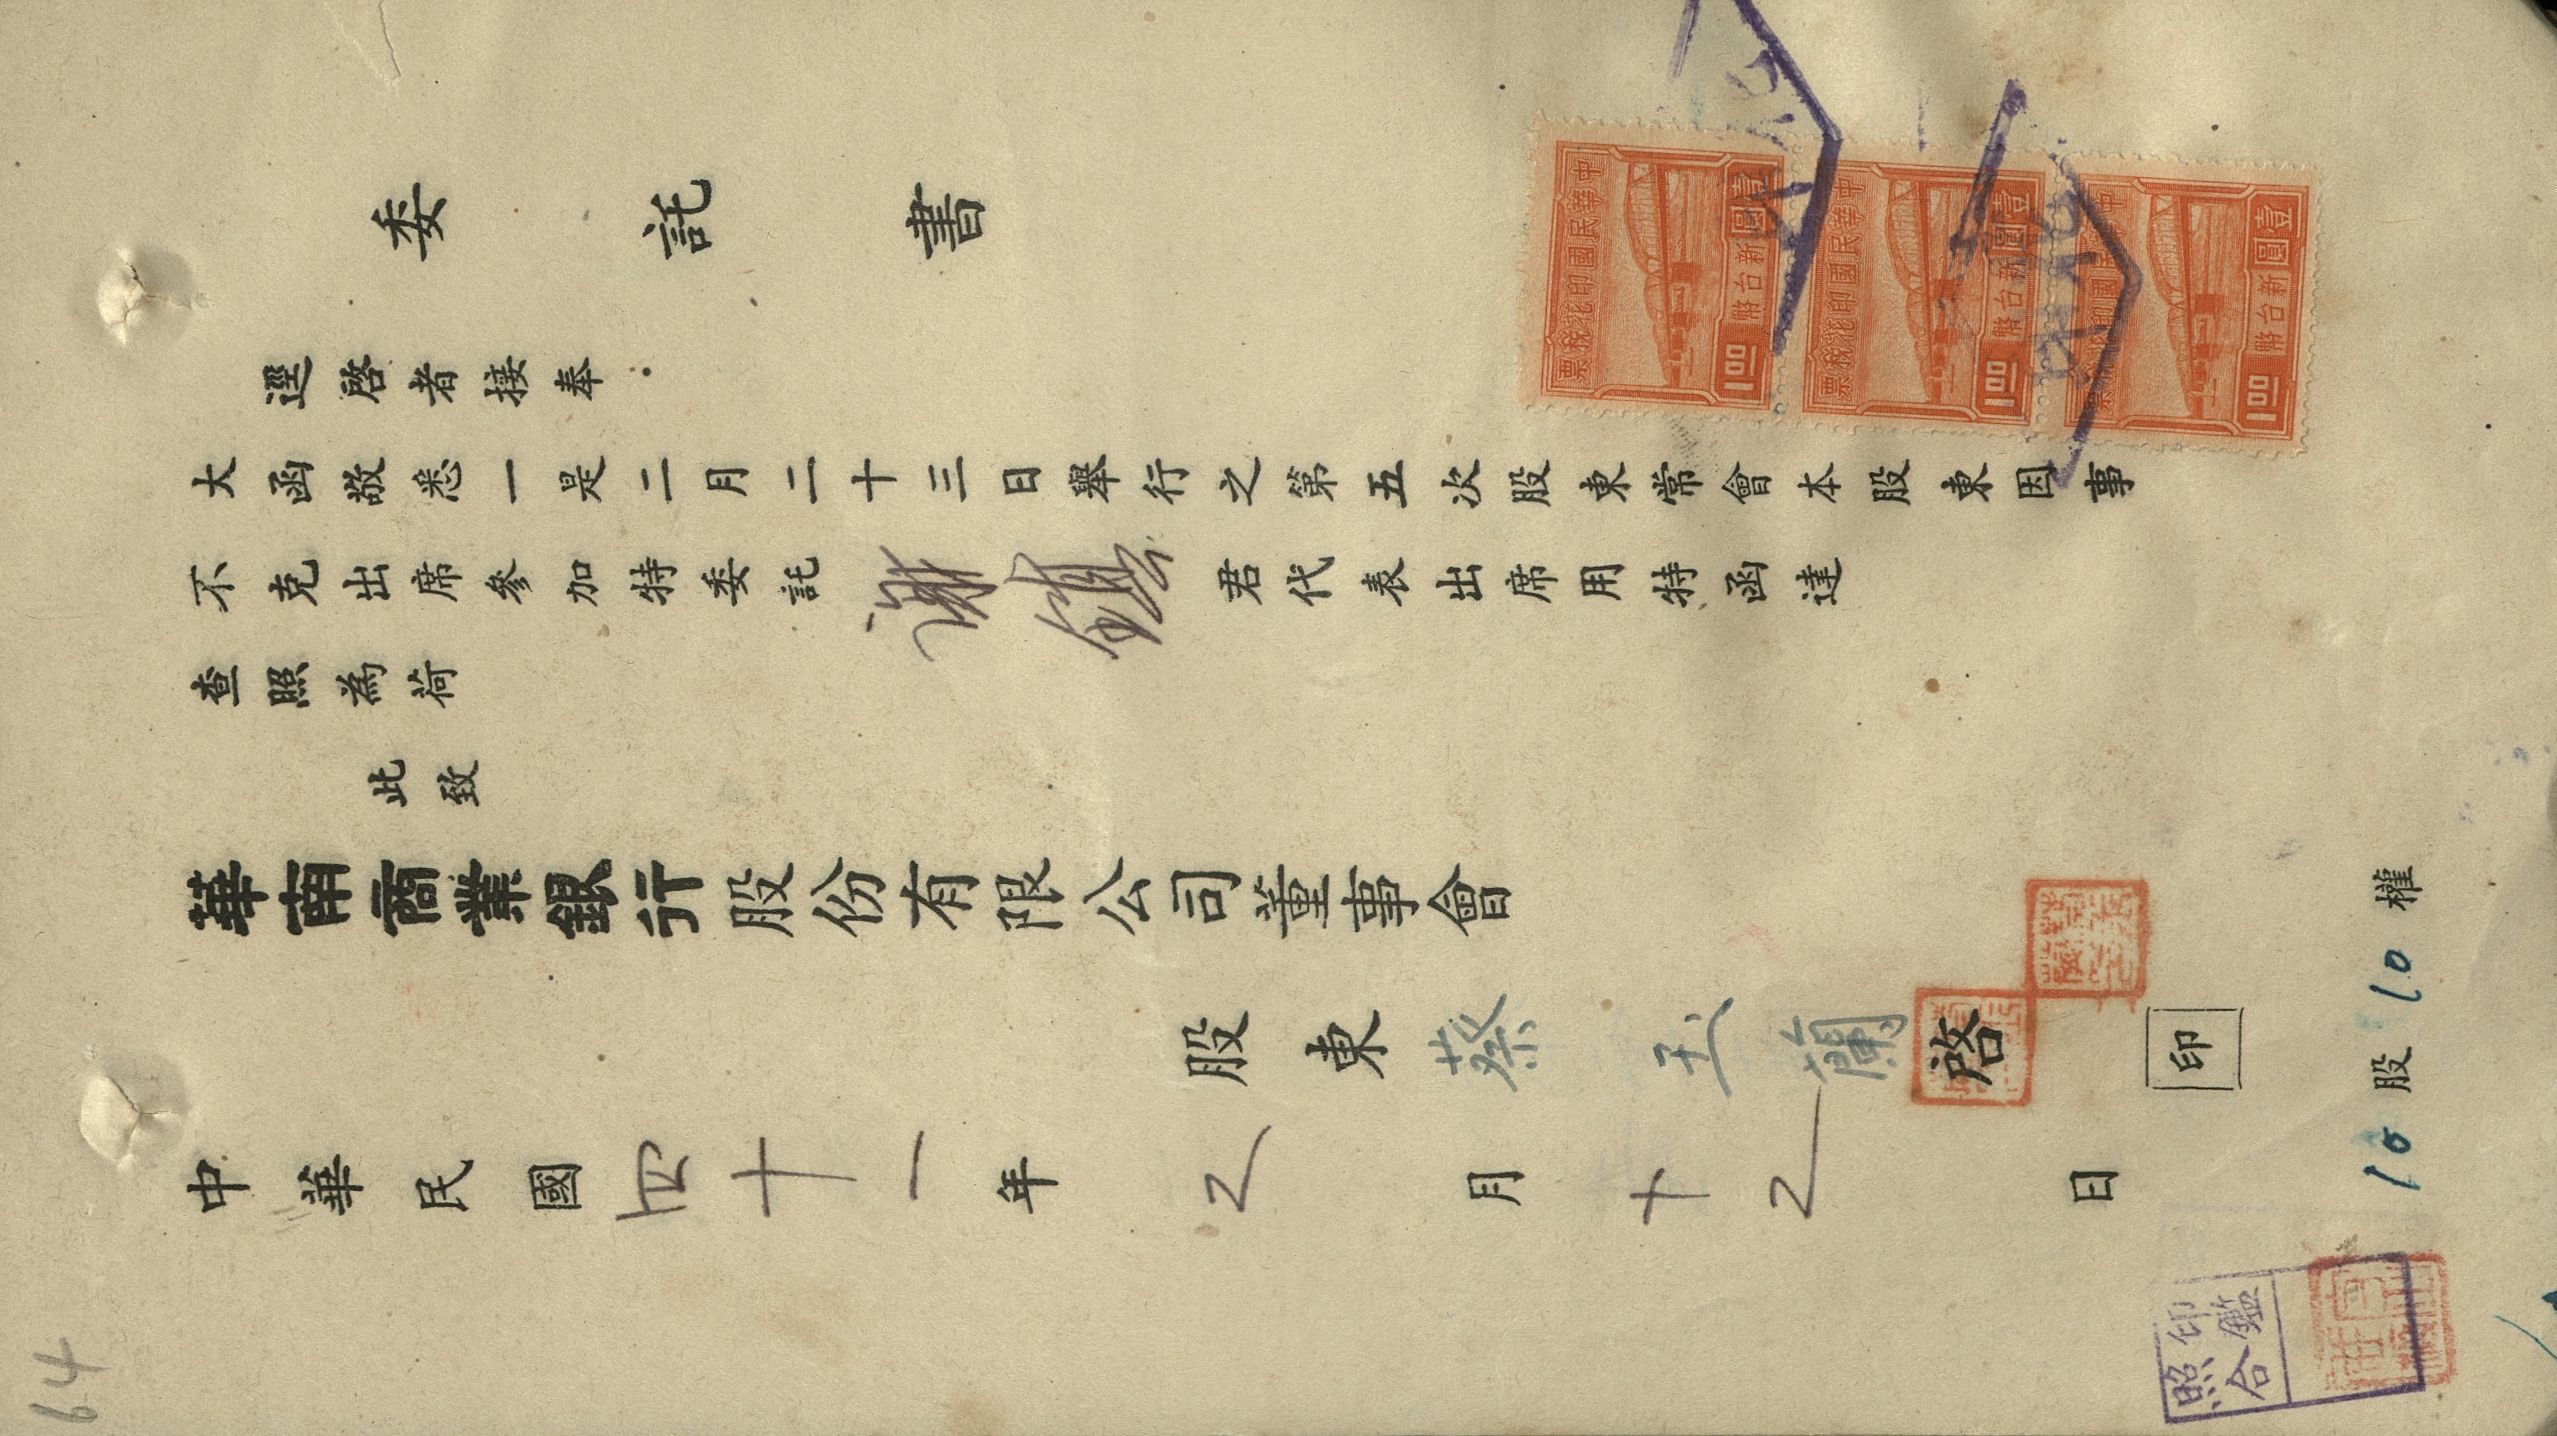 委託書
逕啓者接奉
大函敬悉一是二月二十三日舉行之第五次股東常會本股東因事
不克出席參加特委託謝鎮君代表出席用特函達
查照為荷
此致
華南商業銀行股份有限公司董事會
股東蔡玉蘭啓
印
中華民國四十一年2月十2日
10股10權
印鑑
照合
64
中華民國印花稅票
壹圓
新台幣
1.00
中華民國印花稅票
壹圓
新台幣
1.00
壹圓
新台幣
1.00